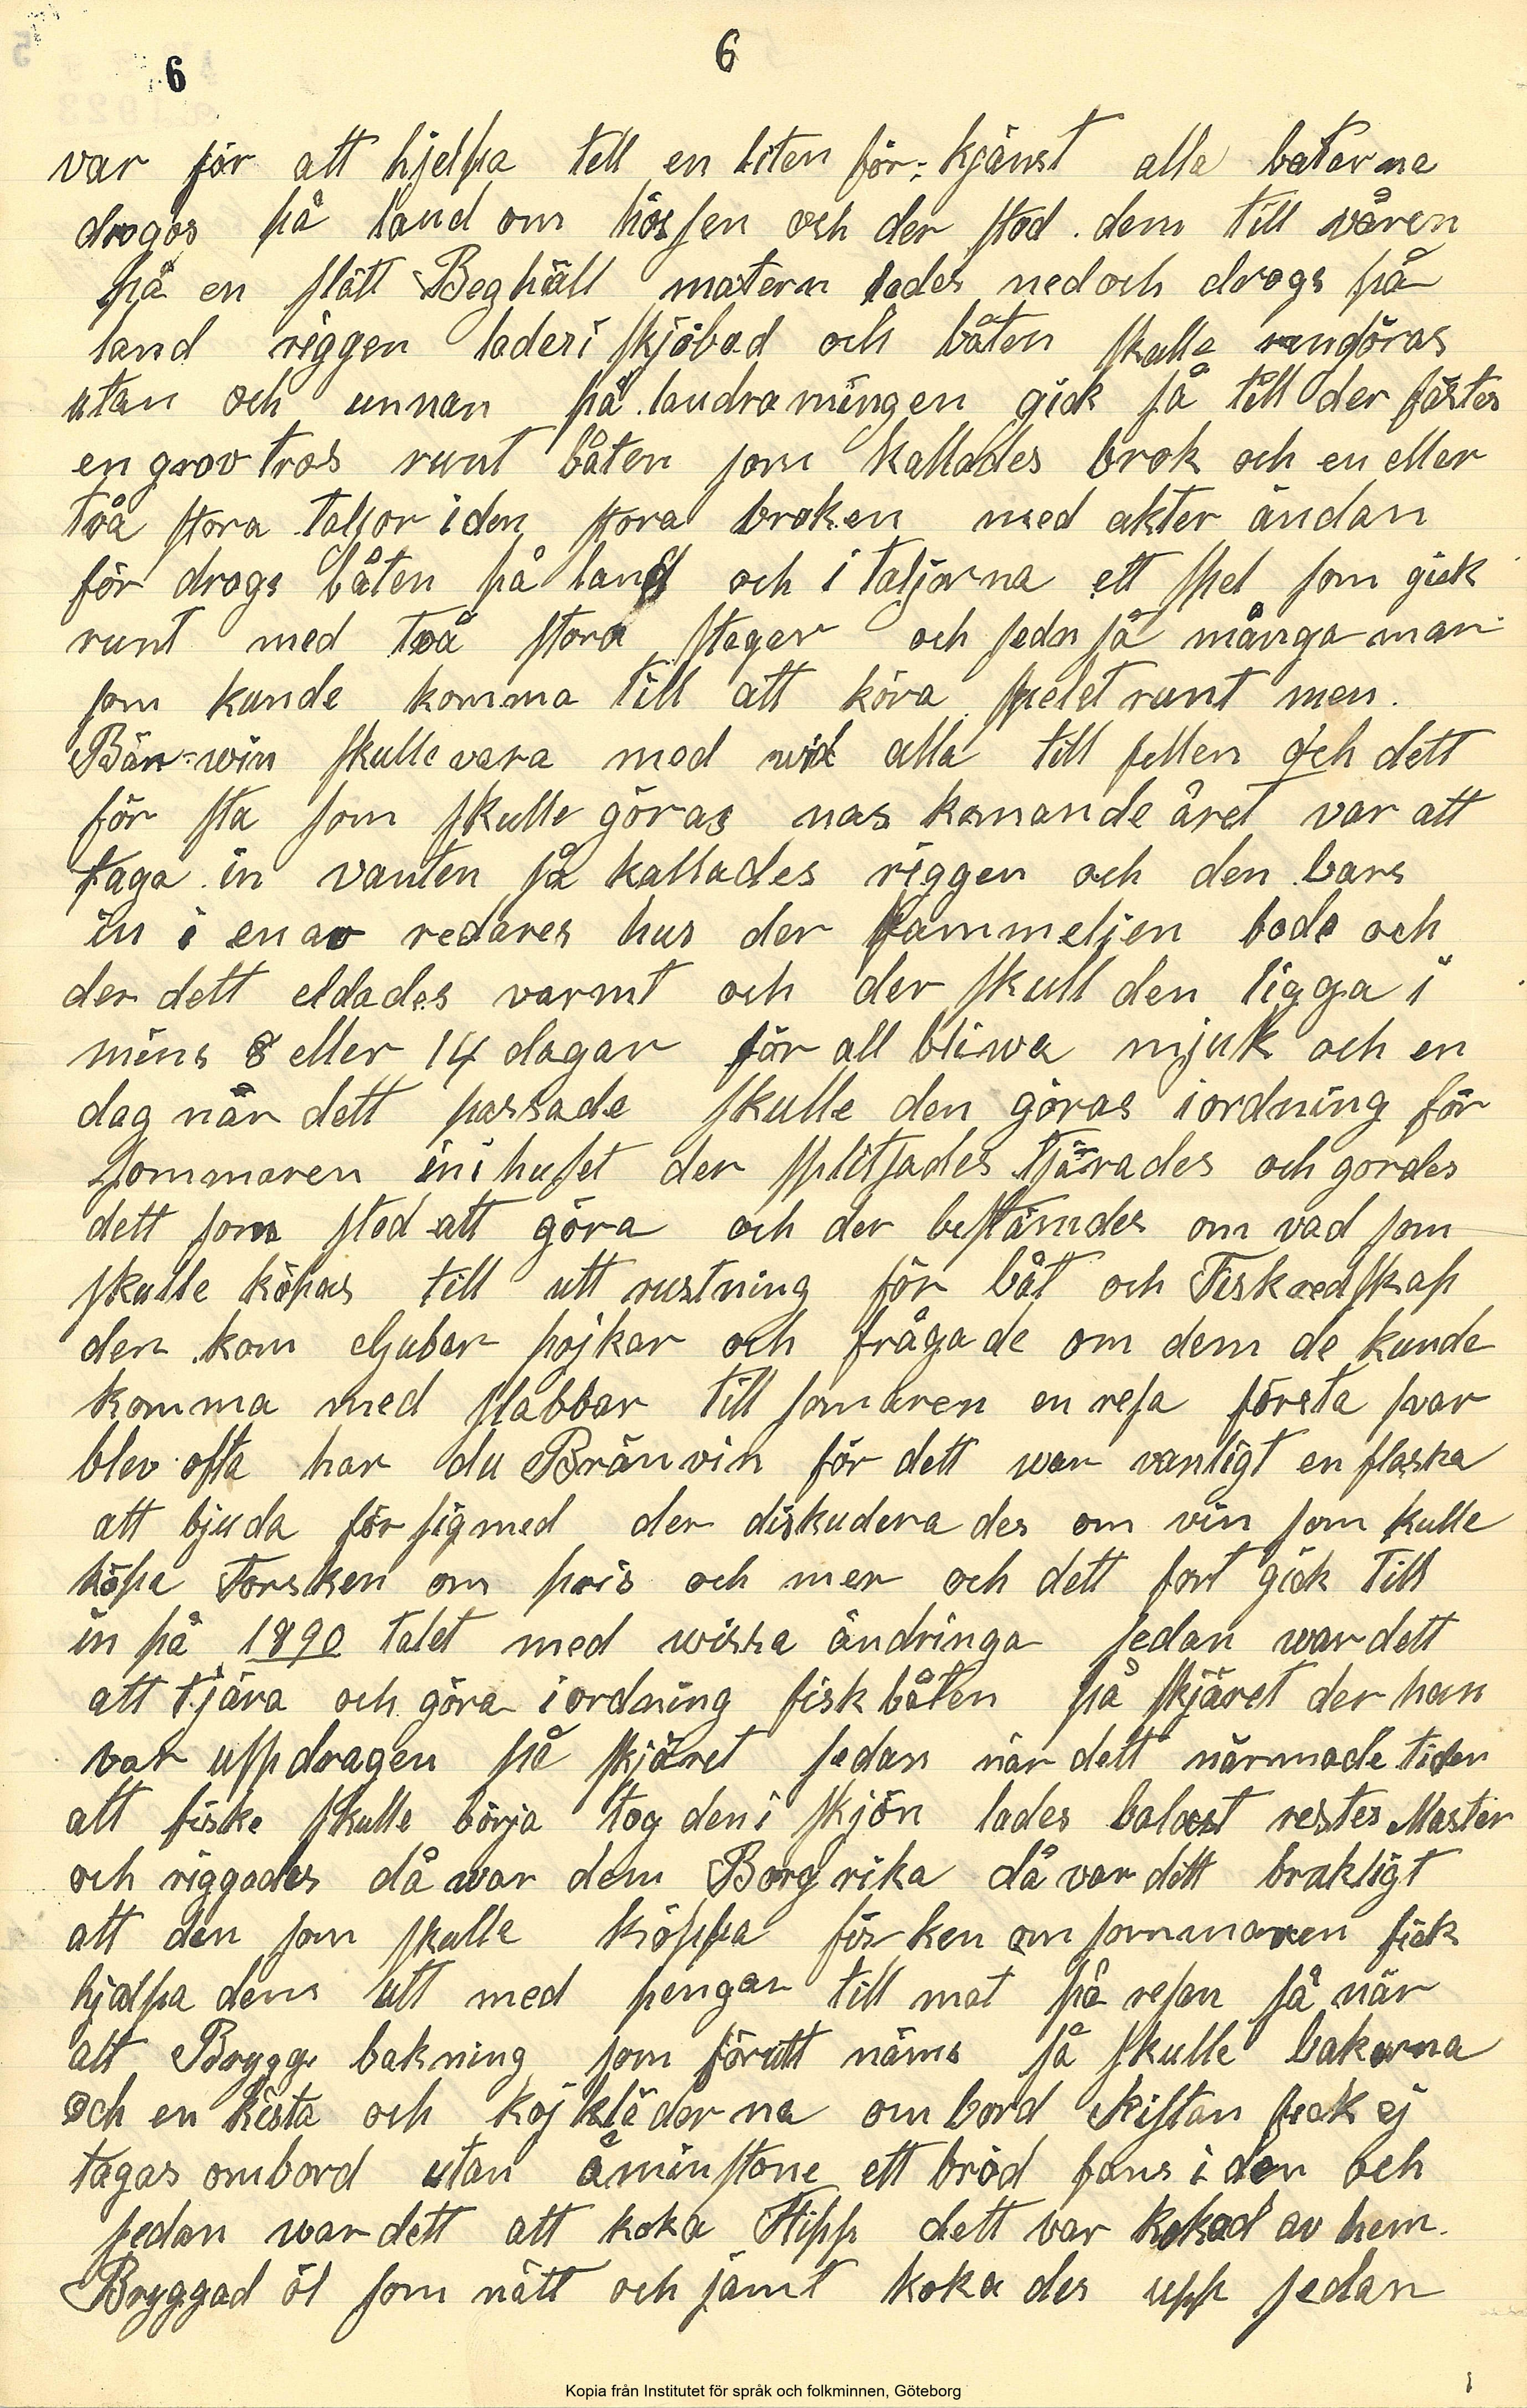 6
6
var för att hjelpa till en liten för-tjänst alla båtarna
drogos på land om hösten och der stod dem till våren
på en slätt Beghäll masten lades ned och drogs på
land riggen lades i skjöbod och båten skulle rengöras
utan och innan på landragningen gick så till der fästes
en grov tros runt båten som kallades brok och en eller
två stora taljor i den stora broken med akter ändan
för drogs båten på land och i taljorna ett spel som gick
runt med två stora steger och sedn så många man
som kunde komma till att köra spelet runt men.
Bän-win skulle vara med wid alla till fellen och dett
för sta som skulle göras nas komande året var att
taga in vanten så kallades riggen och den bars
in i en av redares hus der fammeljen bode och
der dett eldades varmt och der skull den ligga i
mins 8 eller 14 dagar för all bliwa mjuk och en
dag når dett passade skulle den göras iordning för
sommaren ini huset der splitsades tjärades och gordes
dett som stod att göra och der bestämdes om vad som
skulle köpas till utt rustning för båt och Fiskredskap
der kom eljubar pojkar och frågade om dem de kunde
komma med slabbar till somaren en resa första svar
blev ofta har du Bränvin för dett war vanligt en flaska
att bjuda för sig med der diskuderades om vin som kulle
köpa Torsken om pris och mer och dett fort gick till
in på 1890 talet med wissa ändringa sedan war dett
att tjära och göra iordning fisk båten på skjäret der han
var uppdragen på skjäret sedan när dett närmade tiden
att fiske skulle börja tog den i skjön lades balast restes Master
och riggades då war dem Borg rika då var dett brukligt
att den som skulle köppa fisken om sommaren fick
hjälpa dem utt med pengar till mat på resan så när
att Brygge bakning som förutt näms så skulle bakorna
och en kista och kojkläderna om bord Kistan feck ej
tagas ombord utan åminstone ett bröd fans i den och
sedan war dett att koka Stipp dett var kokad av hem.
Bryggad öl som nätt och jämt kokades upp sedan
Kopia från Institutet för språk och folkminnen, Göteborg